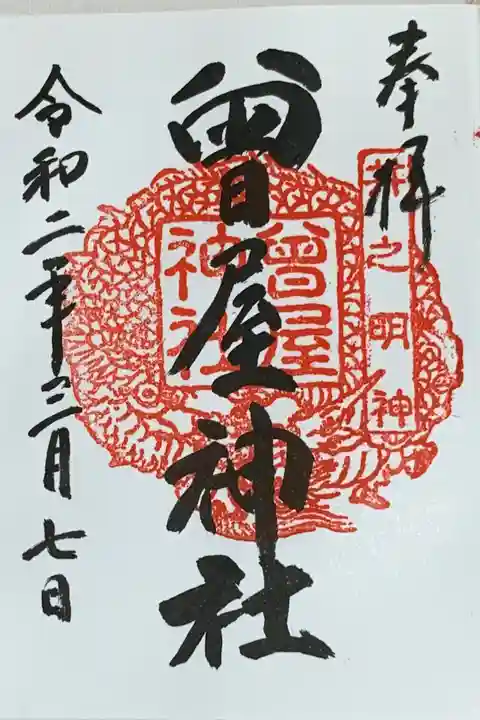 奉拝
之明神
曾屋神社
曾屋
神社
令和二年三月七日